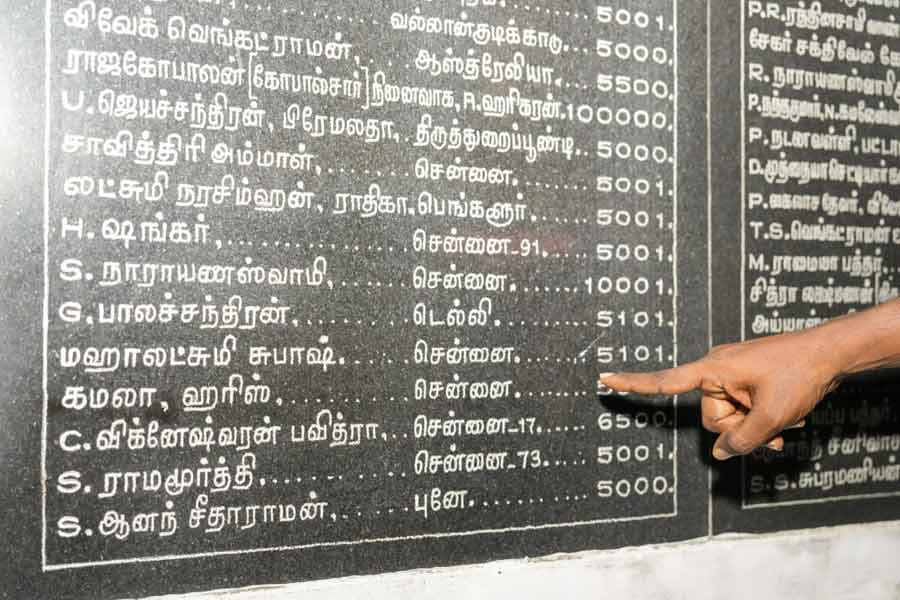 வல்லான்குடிக்காடு... 5001.
விவேக் வெங்கட்ராமன்,..... ஆஸ்த்ரேலியா... 5000.
ராஜகோபாலன் [கோபால்சார்] நினைவாக, R.ஹரிகரன். 5500
U.ஜெயச்சந்திரன், பிரேமலதா, திருத்துறைப்பூண்டி.. 100000.
சாவித்திரி அம்மாள்,..... சென்னை....... 5000.
லட்சுமி நரசிம்ஹன், ராதிகா. பெங்களூர்...... 5001.
H.ஷங்கர்,............ சென்னை-91..... 5001.
S. நாராயணஸ்வாமி,..... சென்னை..... 10001.
G.பாலச்சந்திரன்,...... டெல்லி........ 5101.
மஹாலட்சுமி சுபாஷ்..... சென்னை...... 5101.
கமலா, ஹரிஸ்,........ சென்னை......
C.விக்னேஷ்வரன் பவித்ரா,... சென்னை-17.... 6500.
S. ராமமூர்த்தி......... சென்னை-73.... 5001.
S.ஆனந் சீதாராமன்,..... புனே......... 5000.
P.R.ரத்தினசாமி
சேகர் சக்திவேல்
R. நாராயணஸ்வாமி
P. நடனவள்ளி,
P. கைலாச தேவர்,
T.S.வெங்கட்ராமன்
M. ராமையா பத்தர்...
சித்ரா லக்ஷ்மணன்
S.S.சுப்ரமணியன்